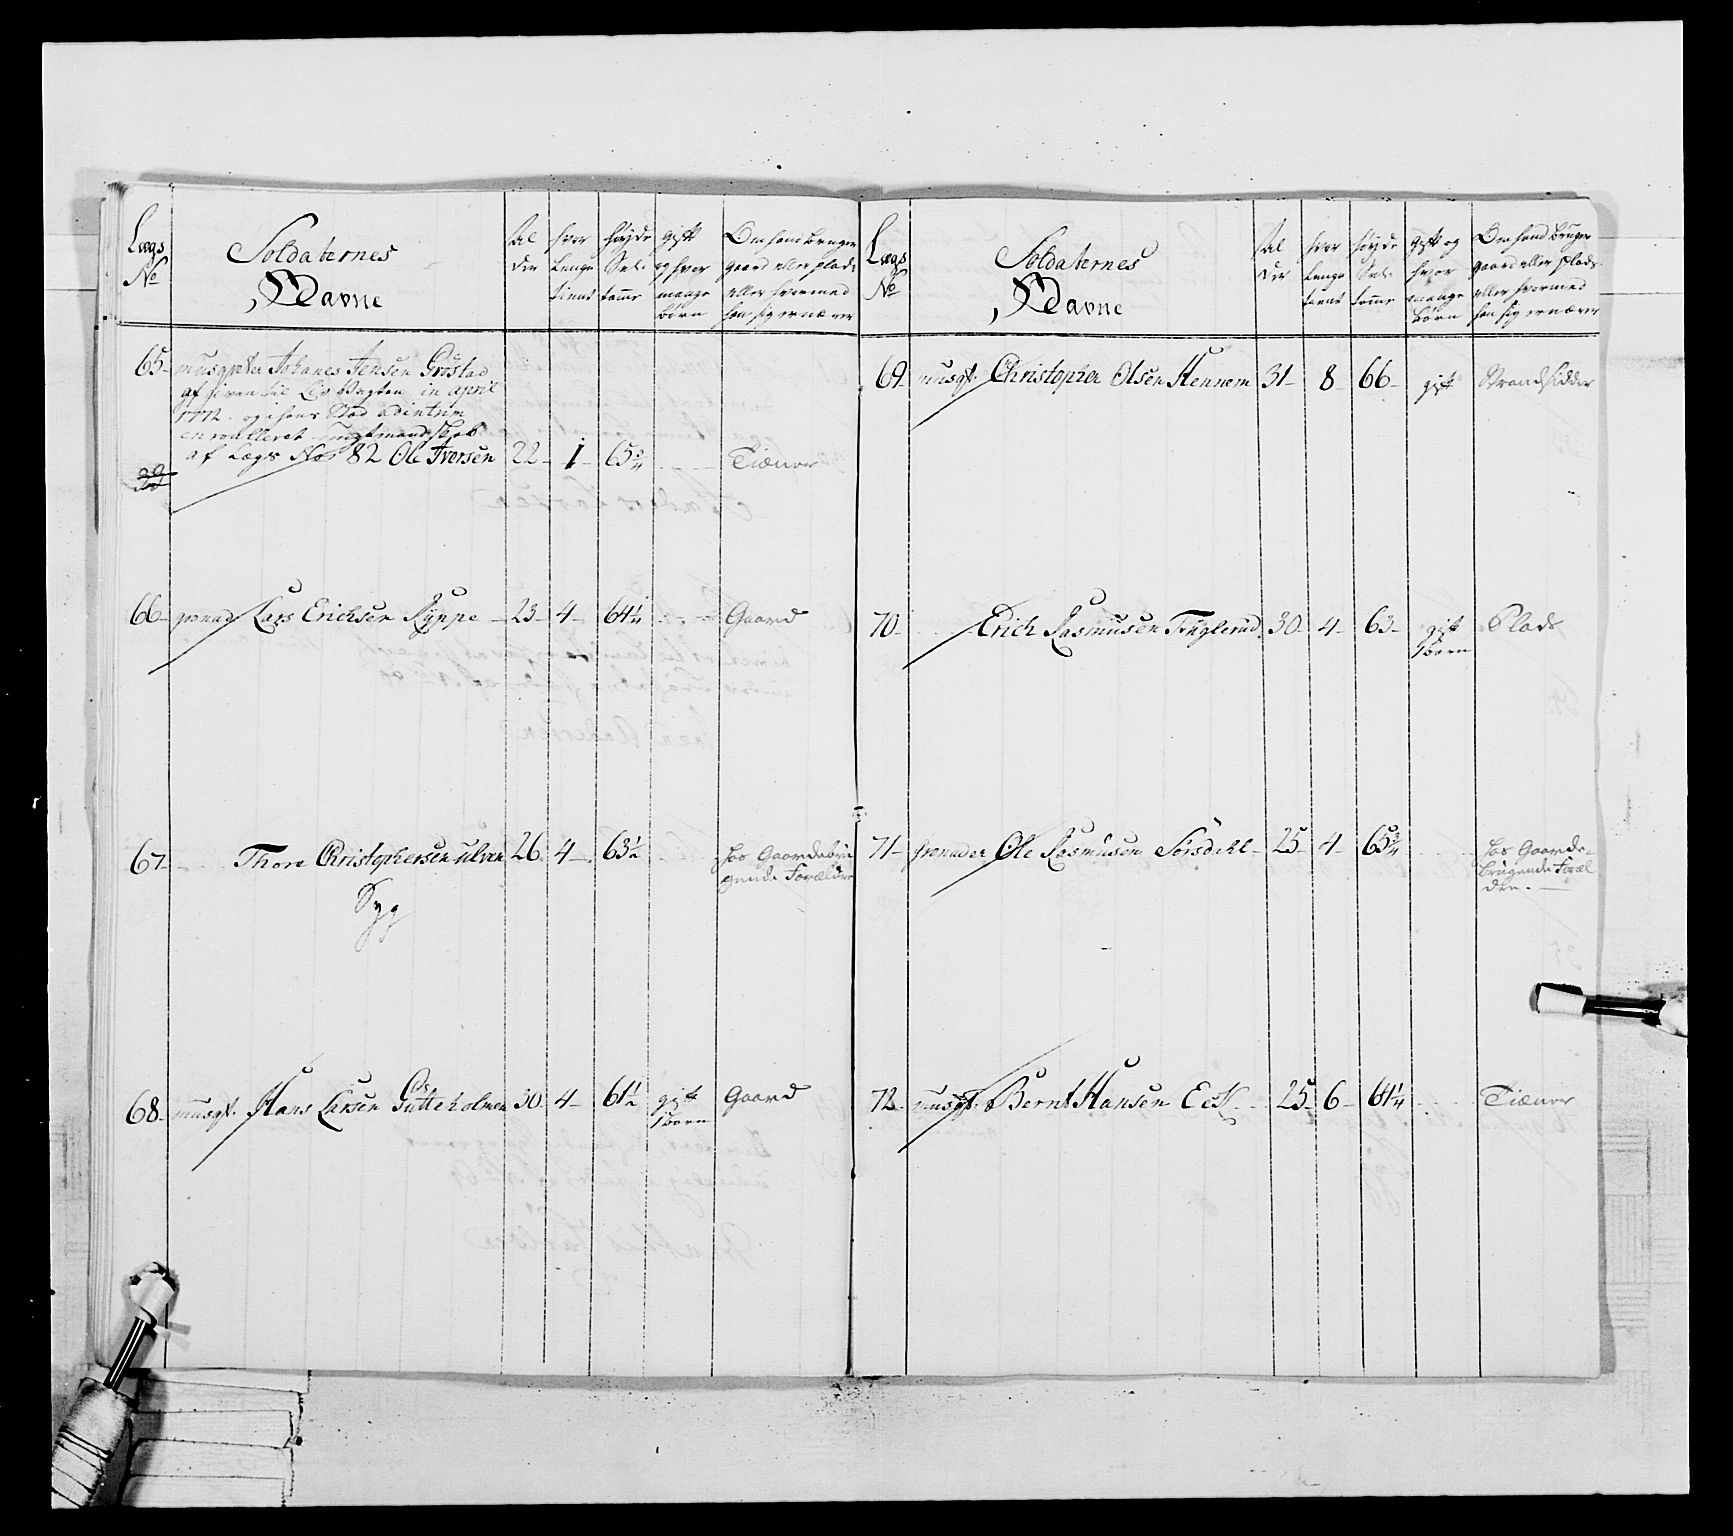 Lægs
No
Soldaternes
Navne
Al
der
hvor
Længe
tient
Høyde
tomme
gift
og hvor
mange
børn
Om hand bruger
gaard eller plads
eller hvormed
han sig ernærer
65 musqpter Johanes Jensen Grøstad
til Liv Vagten in april
1772 og i hans Sted
enroulleret
af Lægs No 82 Ole Iversen 22 1 65 3/4 Tiæner
66 grenad Lars Erichsen Ryppe 23 4 64 1/4 Gaard
67 Thore Christophersen Ulven 26 4 63 1/2 hos Gaardebru
gende Forældre
Syg
68 musqt. Hans Larsen Gutteholmen 30 4 61 1/2 gift Gaard
1 børn
Lægs
No
Soldaternes
Navne
Al
der
hvor
Længe
tient
høyde
tomme
gift og
hvor
mange
børn
Om hand bruger
gaard eller plads
eller hvormed
han sig ernærer
69 musqt. Christopher Olsen Hennem 31 8 66 gift Strandsidder
70 Erich Rasmusen Tinglerud 30 4 63 gift Plads
1 børn
71 grenader Ole Rasmusen Sørsdahl 25 4 65 3/4 hos Gaarde
brugende Foræl
dre.
72 musqt. Bernt Hansen Eek 25 6 61 1/4 Tiæner